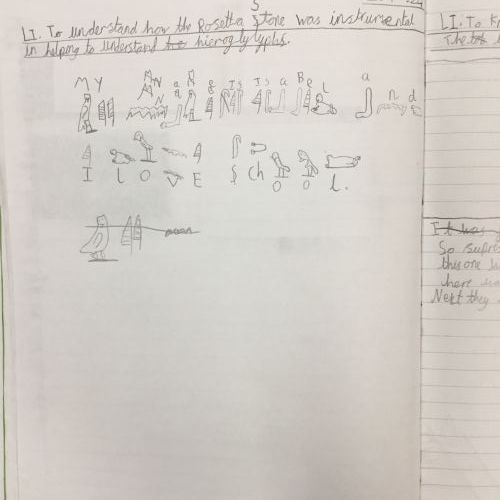 LI. To understand how the Rosetta Stone was instrumental
in helping to understand the hieroglylyphs.
M Y
Is Is a Be l a n d
I L O V E S Ch O O l.
LI. To
It was
So
this one
here
Next they